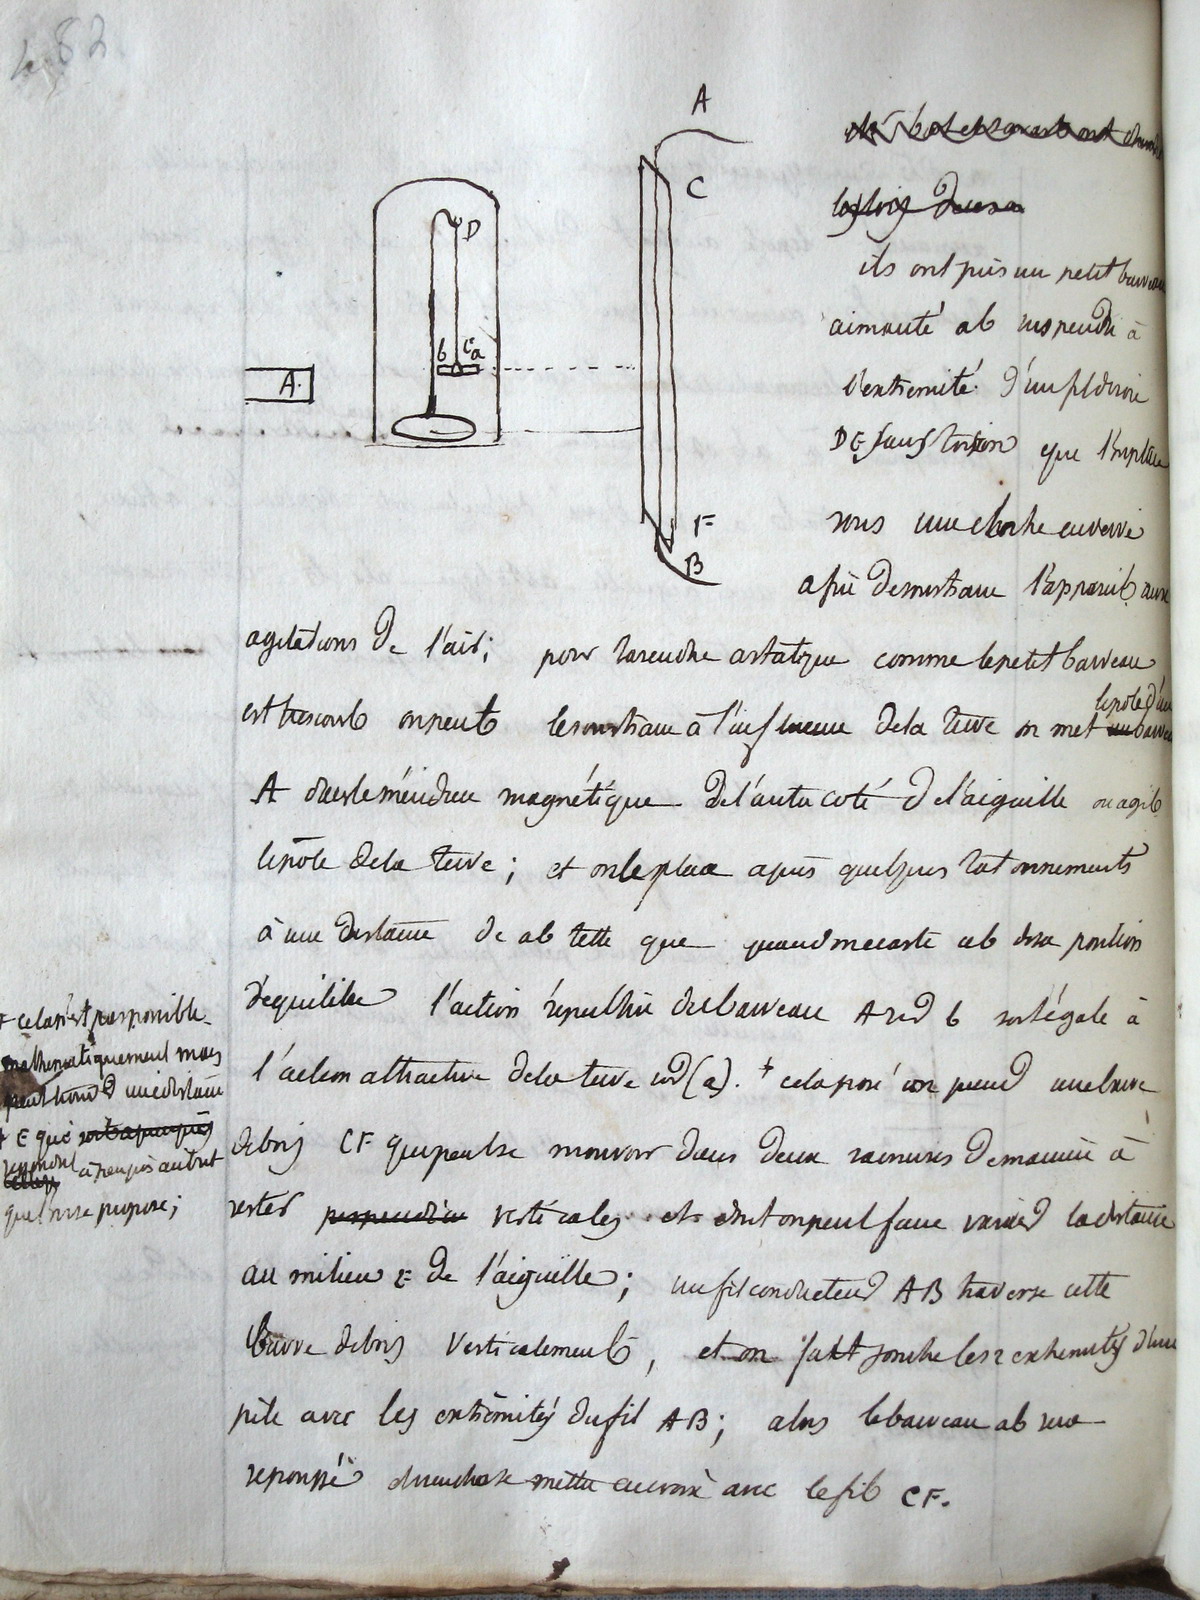 482
A
C
D
b E a
A.
F
B
les lois
ils ont pris un petit barreau
aimanté ab suspendu à
l'extremité d'un fil de soie
DE sans torsion que l'on place
sous une cloche en verre
afin de soustraire l'appareil aux
agitations de l'air; pour la rendre astatique comme le petit barreau
est tres court on peut le soustraire à l'influence de la terre on met un barreau
le pole d'un
A dans le méridien magnétique de l'autre coté de l'aiguille où agit
le pôle de la terre; et on le place après quelques tatonnements
à une distance de ab telle que quand on ecarte ab de sa position
d'equilibre l'action répulsive du barreau A sur b soit égale à
l'action attractive de la terre sur (a). + cela posé on prend une barre
de bois CF qui peut se mouvoir dans deux rainures de manière à
rester perpendicu verticales et dont on peut faire varier la distance
au milieu E de l'aiguille; un fil conducteur AB traverse cette
barre de bois verticalement, et on fait joindre les 2 extremités d'une
pile avec les extrêmités du fil AB; alors le barreau ab sera
repoussé et viendra se mettre en croix avec le fil CF.
+ cela n'est pas possible
mathematiquement mais
peut trouver une distance
E que
à peu près au but
que l'on se propose;